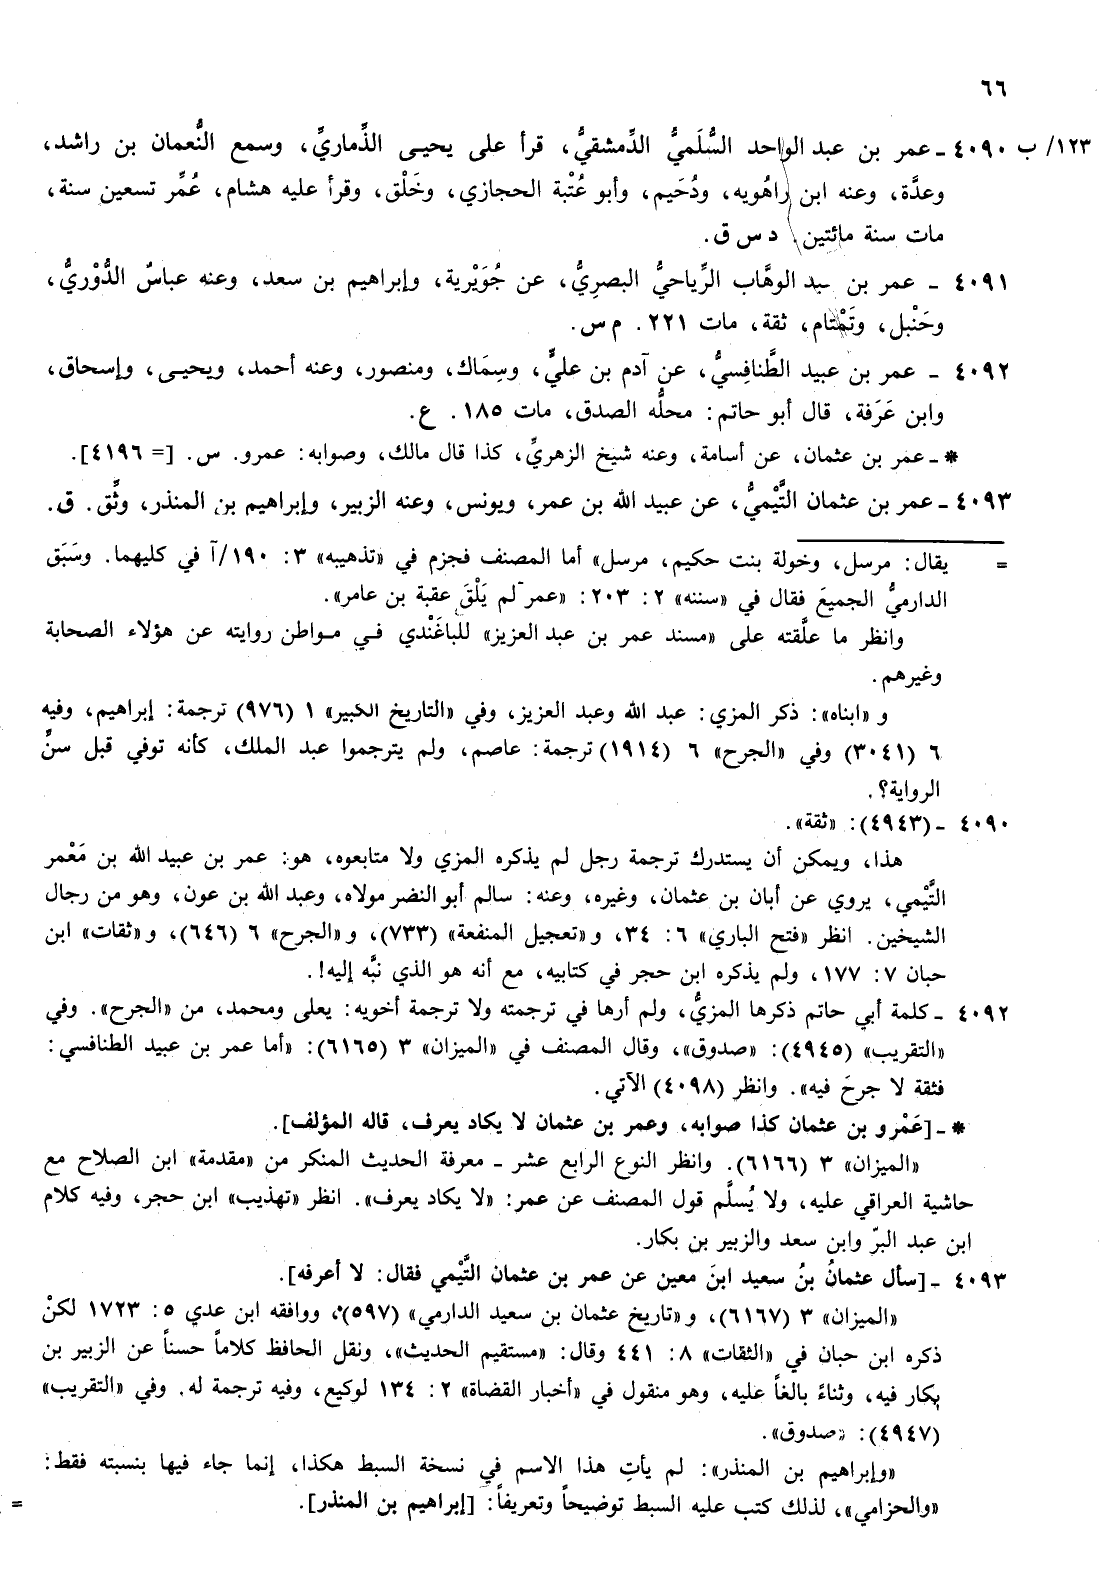 ٦٦
١٢٣/ ب ٤٠٩٠ ـ عمر بن عبد الواحد السُّلَميُّ الدِّمشقيُّ، قرأ على يحيى الذِّماريِّ، وسمع النُّعمان بن راشد،
وعدَّة، وعنه ابن راهُويه، ودُحَيم، وأبو عُتْبة الحجازي، وخَلْق، وقرأ عليه هشام، عُمِّر تسعين سنة،
مات سنة مائتين. د س ق.
٤٠٩١ ـ عمر بن عبد الوهَّاب الرِّياحيُّ البصرِيُّ، عن جُوَيْرية، وإبراهيم بن سعد، وعنه عباسٌ الدُّوْريُّ،
وحَنْبل، وتَمْتام، ثقة، مات ٢٢١. م س.
٤٠٩٢ ـ عمر بن عبيد الطَّنافِسيُّ، عن آدم بن عليٍّ، وسِمَاك، ومنصور، وعنه أحمد، ويحيى، وإسحاق،
وابن عَرَفة، قال أبو حاتم: محلُّه الصدق، مات ١٨٥. ع.
* ـ عمر بن عثمان، عن أسامة، وعنه شيخ الزهريِّ، كذا قال مالك، وصوابه: عمرو. س. [= ٤١٩٦].
٤٠٩٣ ـ عمر بن عثمان التَّيْميُّ، عن عبيد الله بن عمر، ويونس، وعنه الزبير، وإبراهيم بن المنذر، وثِّق. ق.
= يقال: مرسل، وخولة بنت حكيم، مرسل» أما المصنف فجزم في «تذهيبه» ٣: ١٩٠/آ في كليهما. وسَبَق
الدارميُّ الجميعَ فقال في «سننه» ٢: ٢٠٣: «عمر لم يَلْقَ عقبة بن عامر».
وانظر ما علَّقته على «مسند عمر بن عبد العزيز» للباغَنْدي في مواطن روايته عن هؤلاء الصحابة
وغيرهم.
و «ابناه»: ذكر المزي: عبد الله وعبد العزيز، وفي «التاريخ الكبير» ١ (٩٧٦) ترجمة: إبراهيم، وفيه
٦ (٣٠٤١) وفي «الجرح» ٦ (١٩١٤) ترجمة: عاصم، ولم يترجموا عبد الملك، كأنه توفي قبل سنِّ
الرواية؟.
٤٠٩٠ ـ (٤٩٤٣): «ثقة».
هذا، ويمكن أن يستدرك ترجمة رجل لم يذكره المزي ولا متابعوه، هو: عمر بن عبيد الله بن مَعْمر
التَّيْمي، يروي عن أبان بن عثمان، وغيره، وعنه: سالم أبو النضر مولاه، وعبد الله بن عون، وهو من رجال
الشيخين. انظر «فتح الباري» ٦: ٣٤، و «تعجيل المنفعة» (٧٣٣)، و «الجرح» ٦ (٦٤٦)، و «ثقات» ابن
حبان ٧: ١٧٧، ولم يذكره ابن حجر في كتابيه، مع أنه هو الذي نبَّه إليه!.
٤٠٩٢ ـ كلمة أبي حاتم ذكرها المزيُّ، ولم أرها في ترجمته ولا ترجمة أخويه: يعلى ومحمد، من «الجرح». وفي
«التقريب» (٤٩٤٥): «صدوق»، وقال المصنف في «الميزان» ٣ (٦١٦٥): «أما عمر بن عبيد الطنافسي:
فثقة لا جرحَ فيه». وانظر (٤٠٩٨) الآتي.
* ـ [عَمْرو بن عثمان كذا صوابه، وعمر بن عثمان لا يكاد يعرف، قاله المؤلف].
«الميزان» ٣ (٦١٦٦). وانظر النوع الرابع عشر ـ معرفة الحديث المنكر من «مقدمة» ابن الصلاح مع
حاشية العراقي عليه، ولا يُسلَّم قول المصنف عن عمر: «لا يكاد يعرف». انظر «تهذيب» ابن حجر، وفيه كلام
ابن عبد البرّ وابن سعد والزبير بن بكار.
٤٠٩٣ ـ [سأل عثمانُ بنُ سعيد ابنَ معين عن عمر بن عثمان التَّيْمي فقال: لا أعرفه].
«الميزان» ٣ (٦١٦٧)، و «تاريخ عثمان بن سعيد الدارمي» (٥٩٧)، ووافقه ابن عدي ٥: ١٧٢٣ لكنْ
ذكره ابن حبان في «الثقات» ٨: ٤٤١ وقال: «مستقيم الحديث»، ونقل الحافظ كلاماً حسناً عن الزبير بن
بكار فيه، وثناءً بالغاً عليه، وهو منقول في «أخبار القضاة» ٢: ١٣٤ لوكيع، وفيه ترجمة له. وفي «التقريب»
(٤٩٤٧): «صدوق».
«وإبراهيم بن المنذر»: لم يأتِ هذا الاسم في نسخة السبط هكذا، إنما جاء فيها بنسبته فقط:
«والحزامي»، لذلك كتب عليه السبط توضيحاً وتعريفاً: [إبراهيم بن المنذر]. =